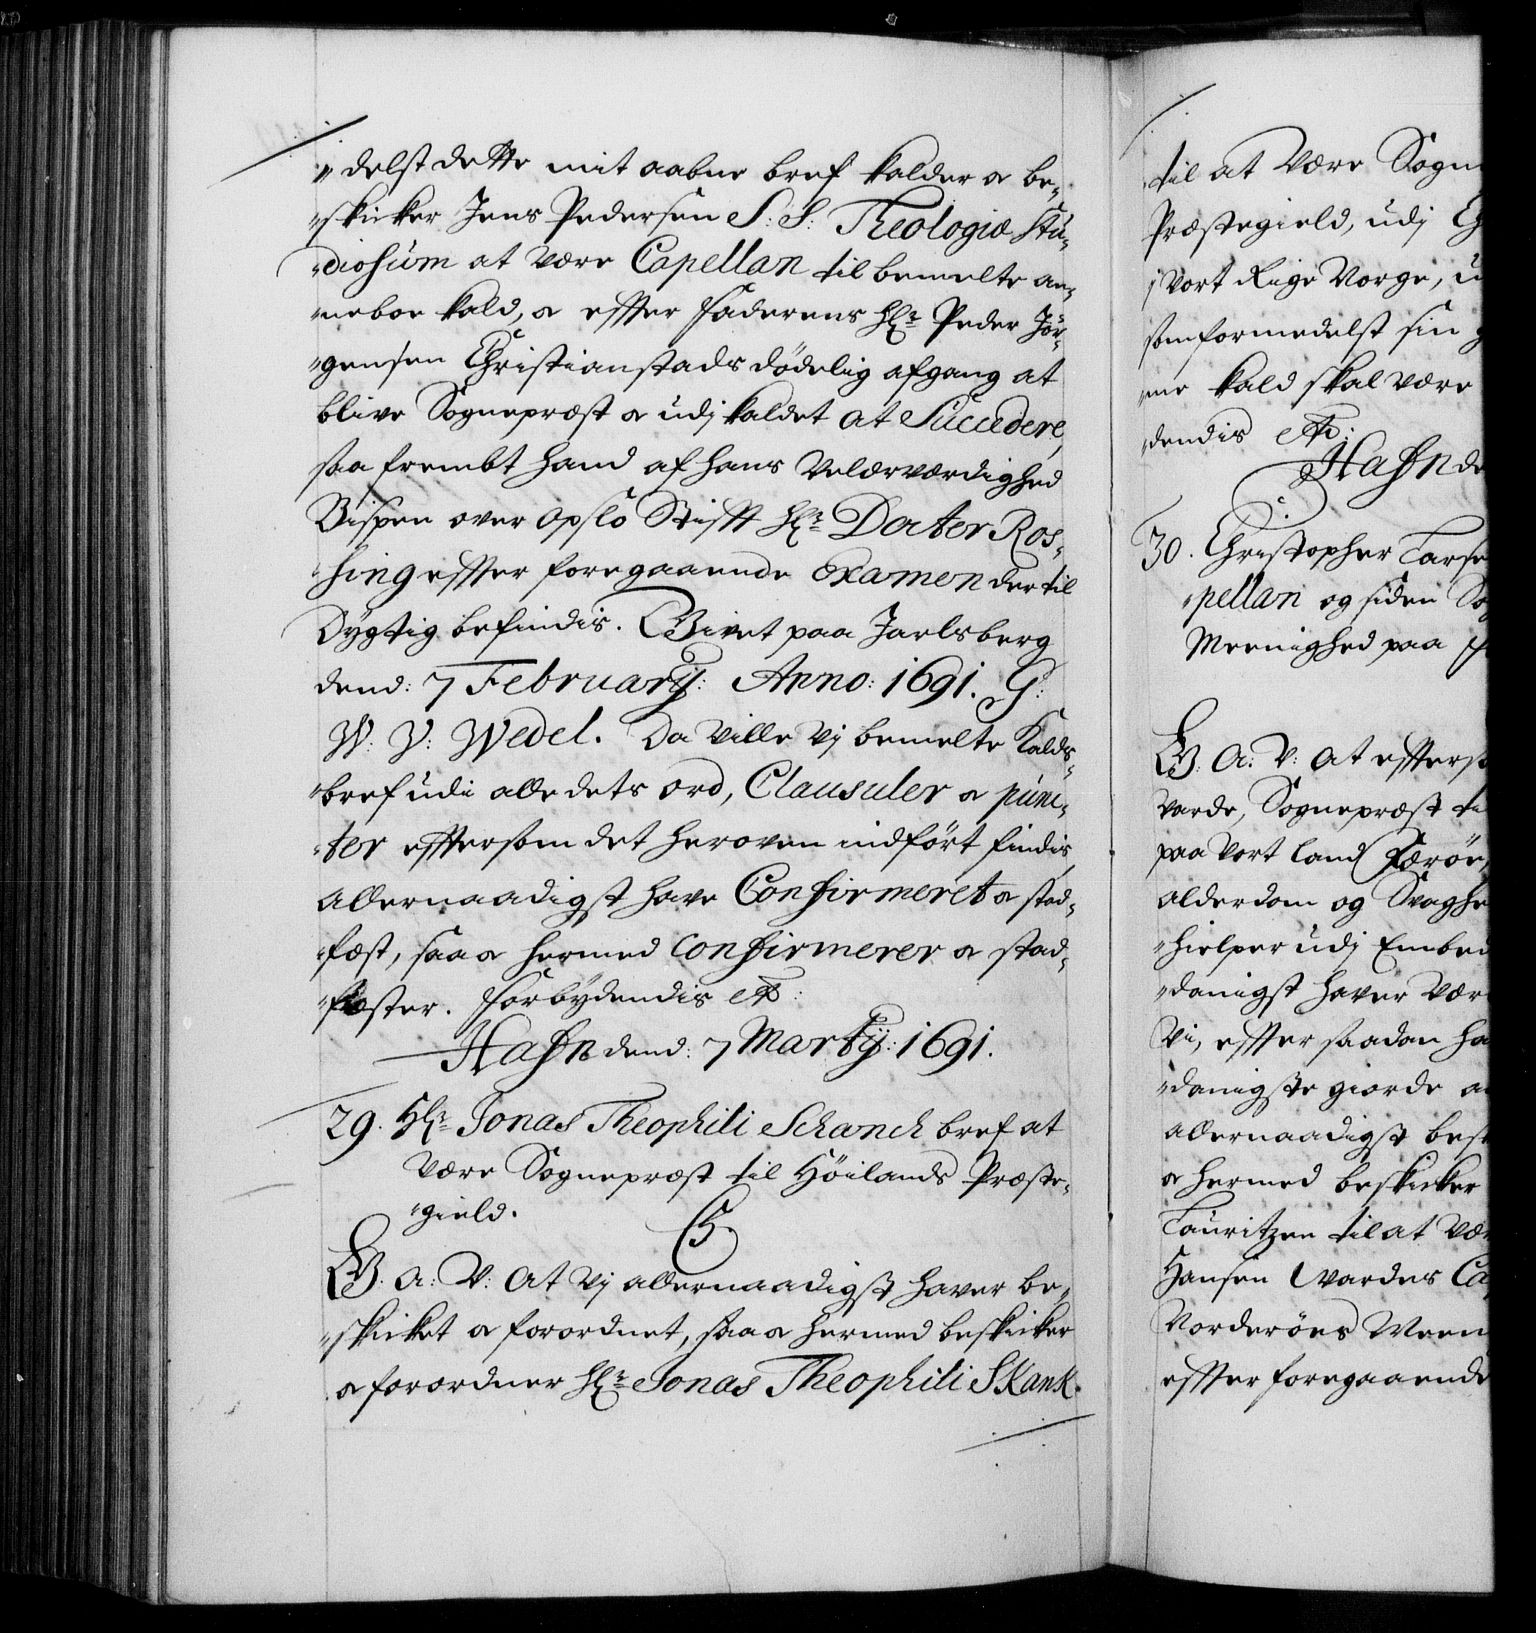 "delst dette mit aabne bref kalder o be-
"skicker Jens Pedersen S: S: Theologiæ Stu-
"diosum at være Capellan til bemelte an-
"neboe kald, o effter Faderens Hr: Peder Jör-
"gensen Christianstads dödelig afgang at
blive Sognepræst o udj kaldet at Succedere,
saa frembt hand af hans Velærværdighed
Bispen over Opslo Stifft Hr: Docter Ros-
"hing effter foregaaende Examen der til
Dygtig befindis. Givet paa Jarlsberg
dend: 7 Februarij: Anno: 1691. G:
W: V: Wedel. Da ville Vj bemelte Kalds-
"bref udi alle dets ord, Clausuler o punc-
"ter efftersom det heroven indfört findis,
allernaadigst have Confirmeret o stad-
"fæst, saa o hermed Confirmerer o stad-
"fæster. Forbydendis etc:
Hafn dend: 7 Martij: 1691.
29. Hr: Jonas Theophili Schanch bref at
være Sognepræst til Höilands Præste-
"gield.
C5.
G. A: V: At Vj allernaadigst haver be-
"skicket o forordnet, saa o hermed beskicker
o forordner Hr: Jonas Theophili Skank
til at være Sogn
Præstegield, udj
j Vort Rige Norge, u
som formedelst sin g
"ne kald skal være
"dendis etc:
Hafn de
30. Christopher Larse
"pellan og siden So
Meenighed paa
G: A: V: At effters
Varde, Sognepræst ti
paa Vort Land Færöe,
alderdom og Svaghe
"hielper udj Embed
"danigst haver vær
Vi, effter saadan ha
"danigste giorde an
allernaadigst besk
o hermed beskicker
Lauritzen til at vær
Hansen Wardes Ca
Norderöes Meen
effter foregaaende